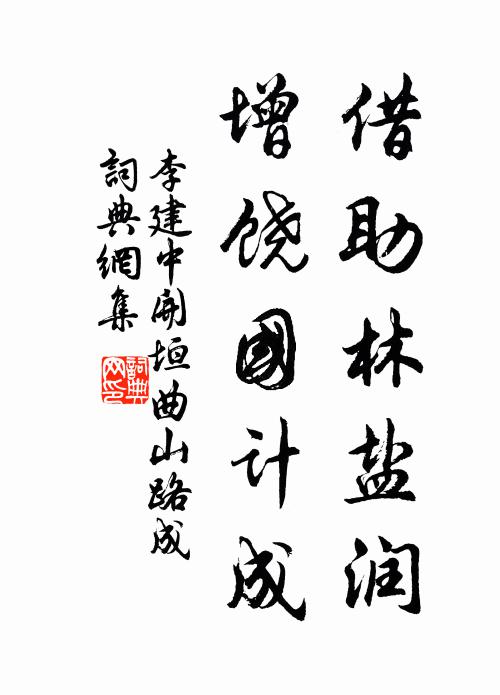 借助林盐润
增饶國计成
李建中開垣曲山路成
詞典網集
詞典
网印